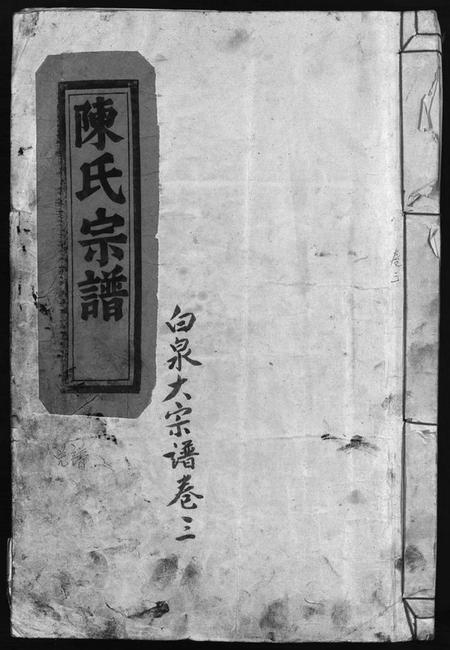 陳氏宗譜
白泉大宗谱卷三
卷三